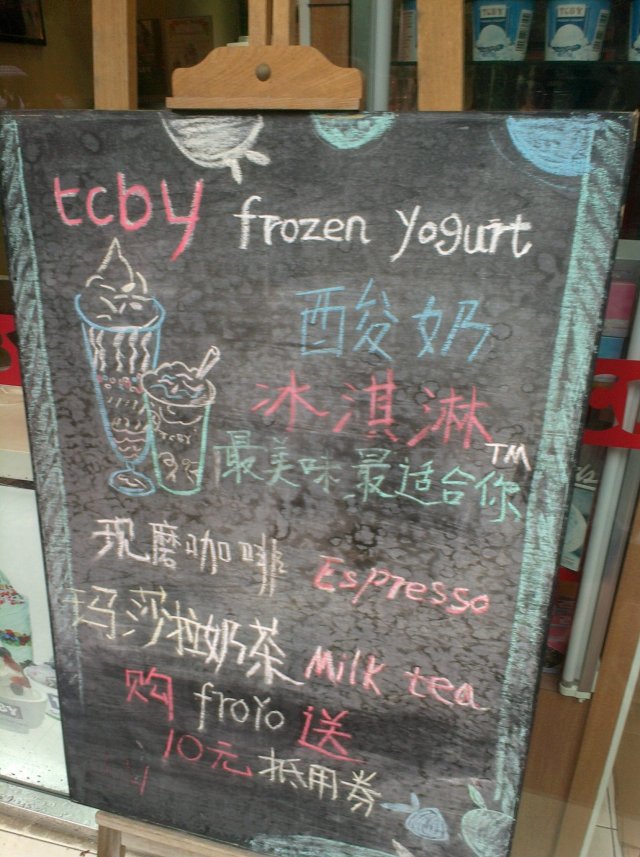 TCBY
TCBY
tcby frozen yogurt
酸奶
冰淇淋
最美味 最适合你™
TCBY
现磨咖啡 Espresso
玛莎拉奶茶 Milk tea
购 froyo 送
10元 抵用券